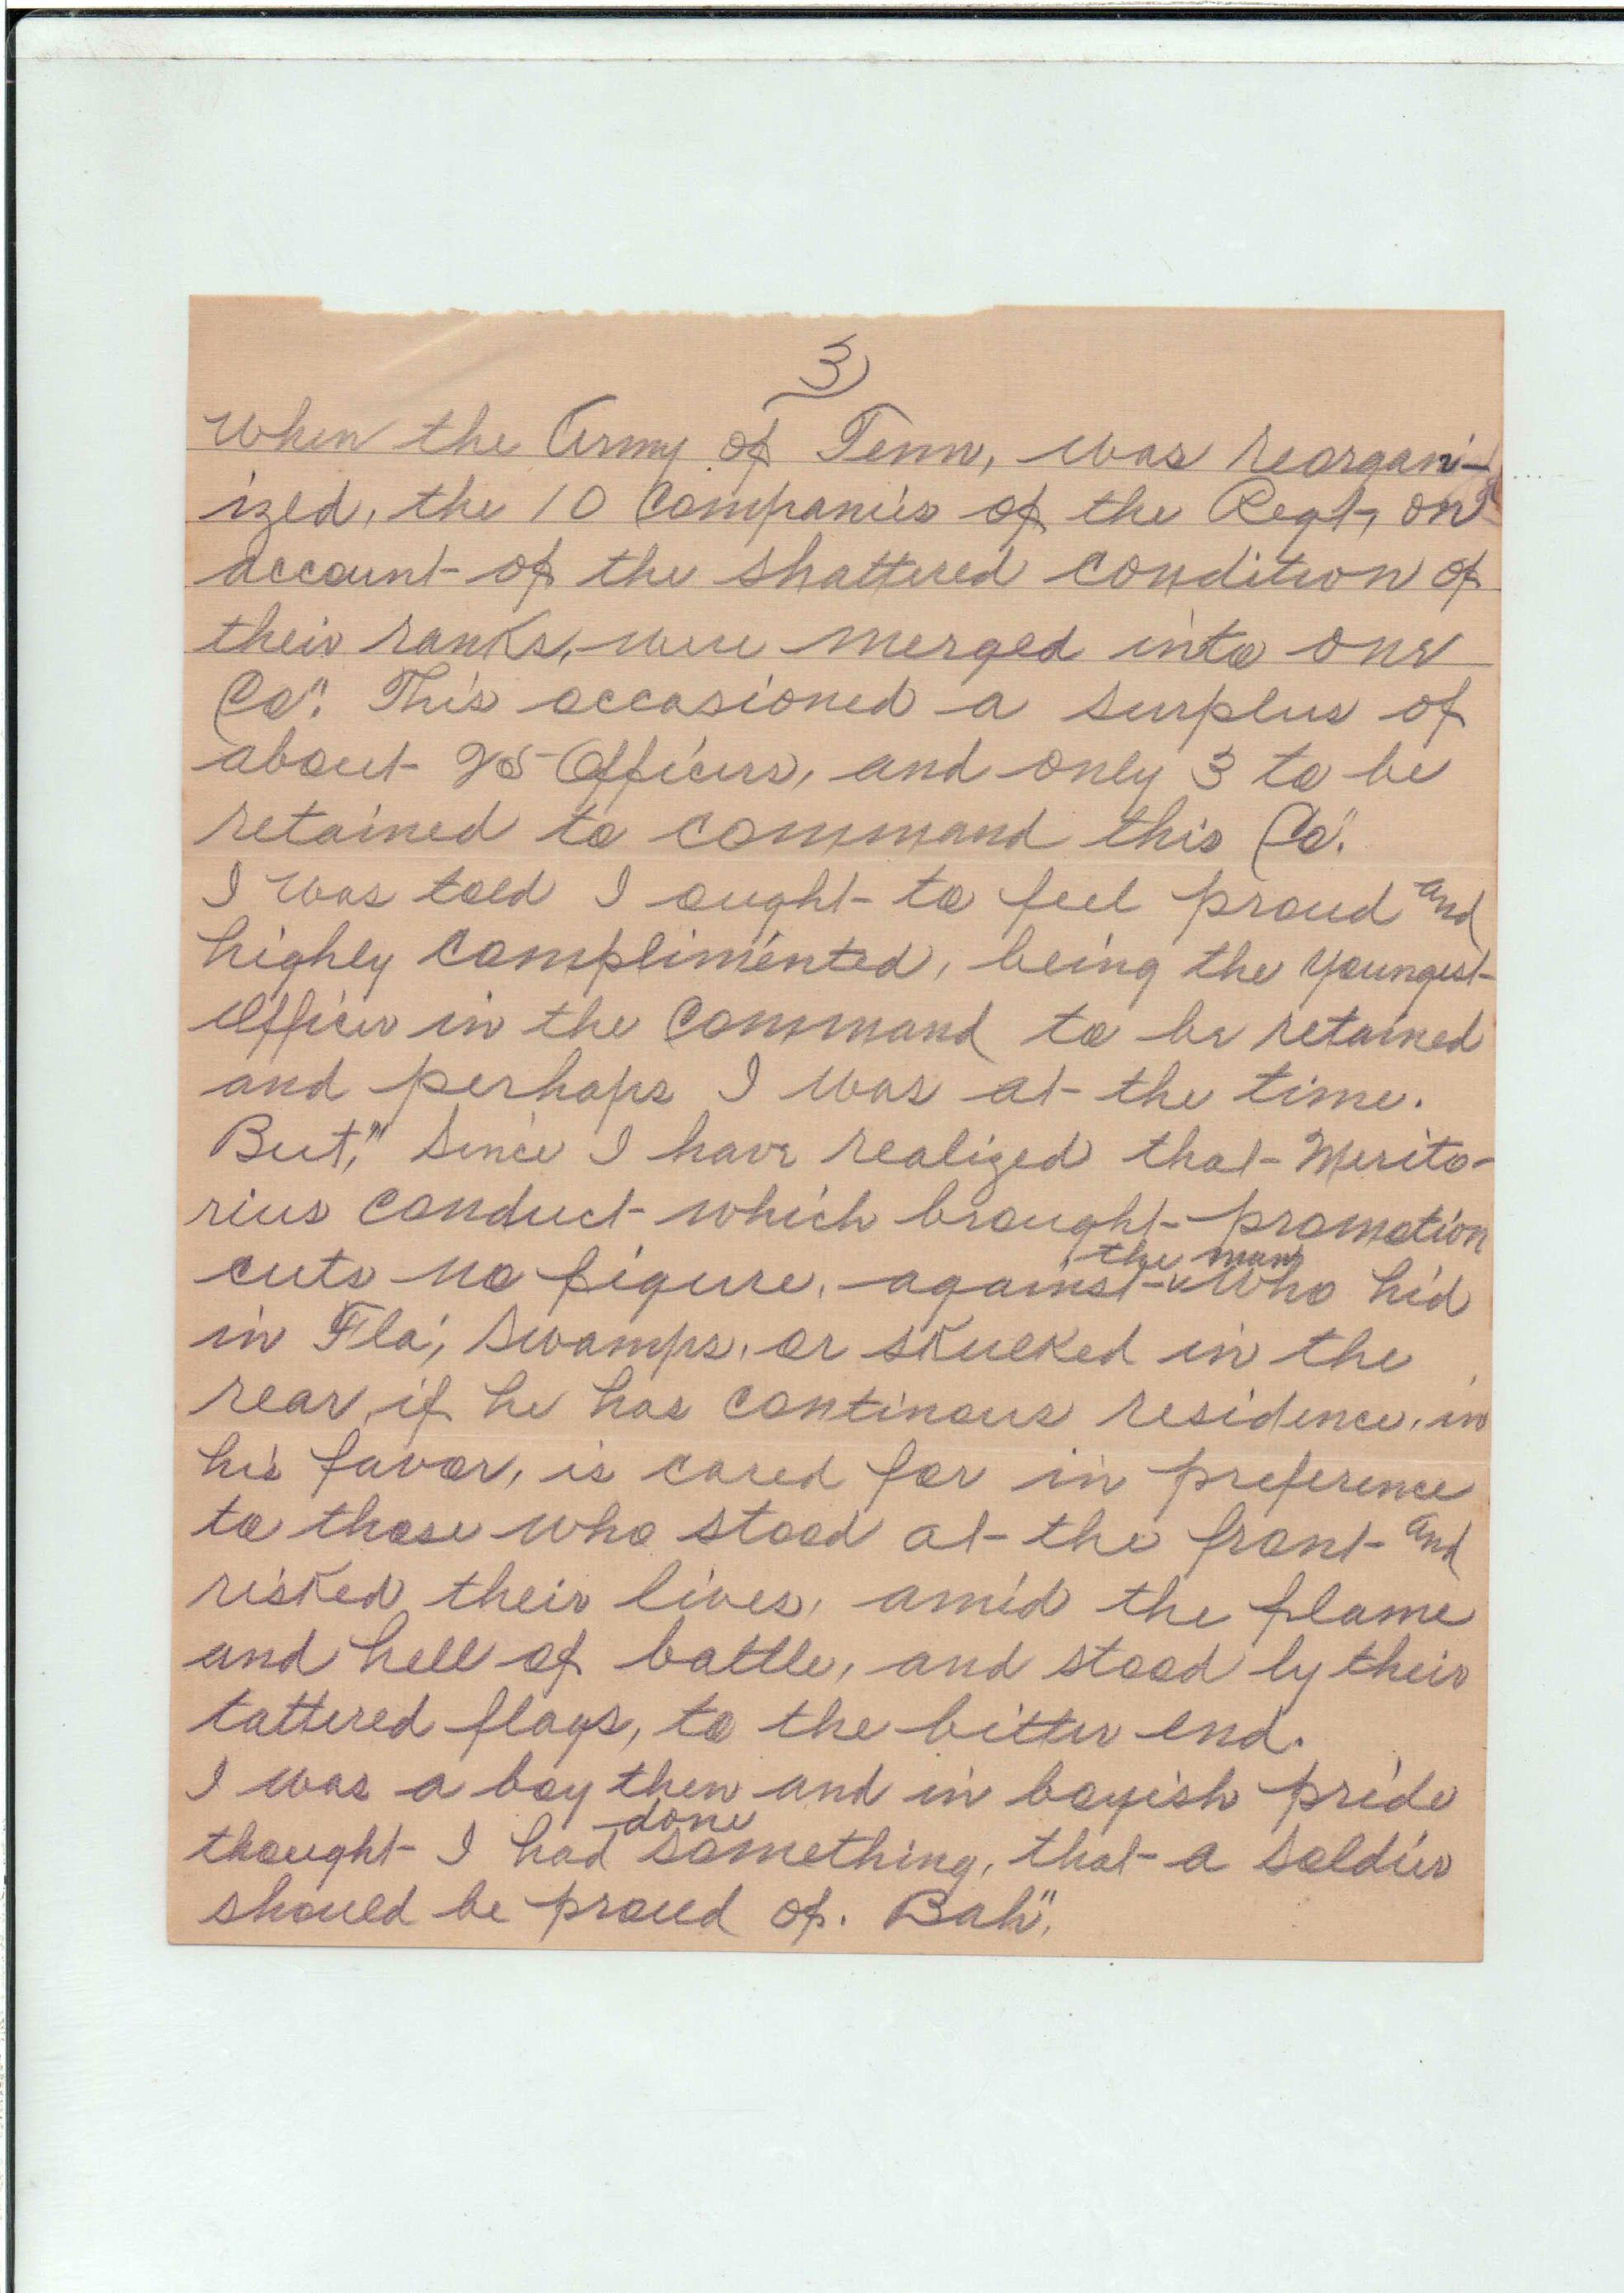 3
When the Army of Tenn, was reorgani-
ized, the 10 Companies of the Regt, on
account of the shattered condition of
their ranks, were merged into one
Co". This occasioned a surplus of
about 25 Officers, and only 3 to be
retained to command this Co".
I was told I ought to feel proud and
highly complimented, being the youngest
Officer in the Command to be retained
and perhaps I was at the time.
But," since I have realized that Merito-
rius conduct which brought promotion
cuts no figure, against the man who hid
in Fla', swamps, or skulked in the
rear, if he has continous residence, in
his favor, is cared for in preference
to those who stood at the front and
risked their lives, amid the flame
and hell of battle, and stood by their
tattered flags, to the bitter end.
I was a boy then and in boyish pride
thought I had done something, that a soldier
should be proud of. Bah".